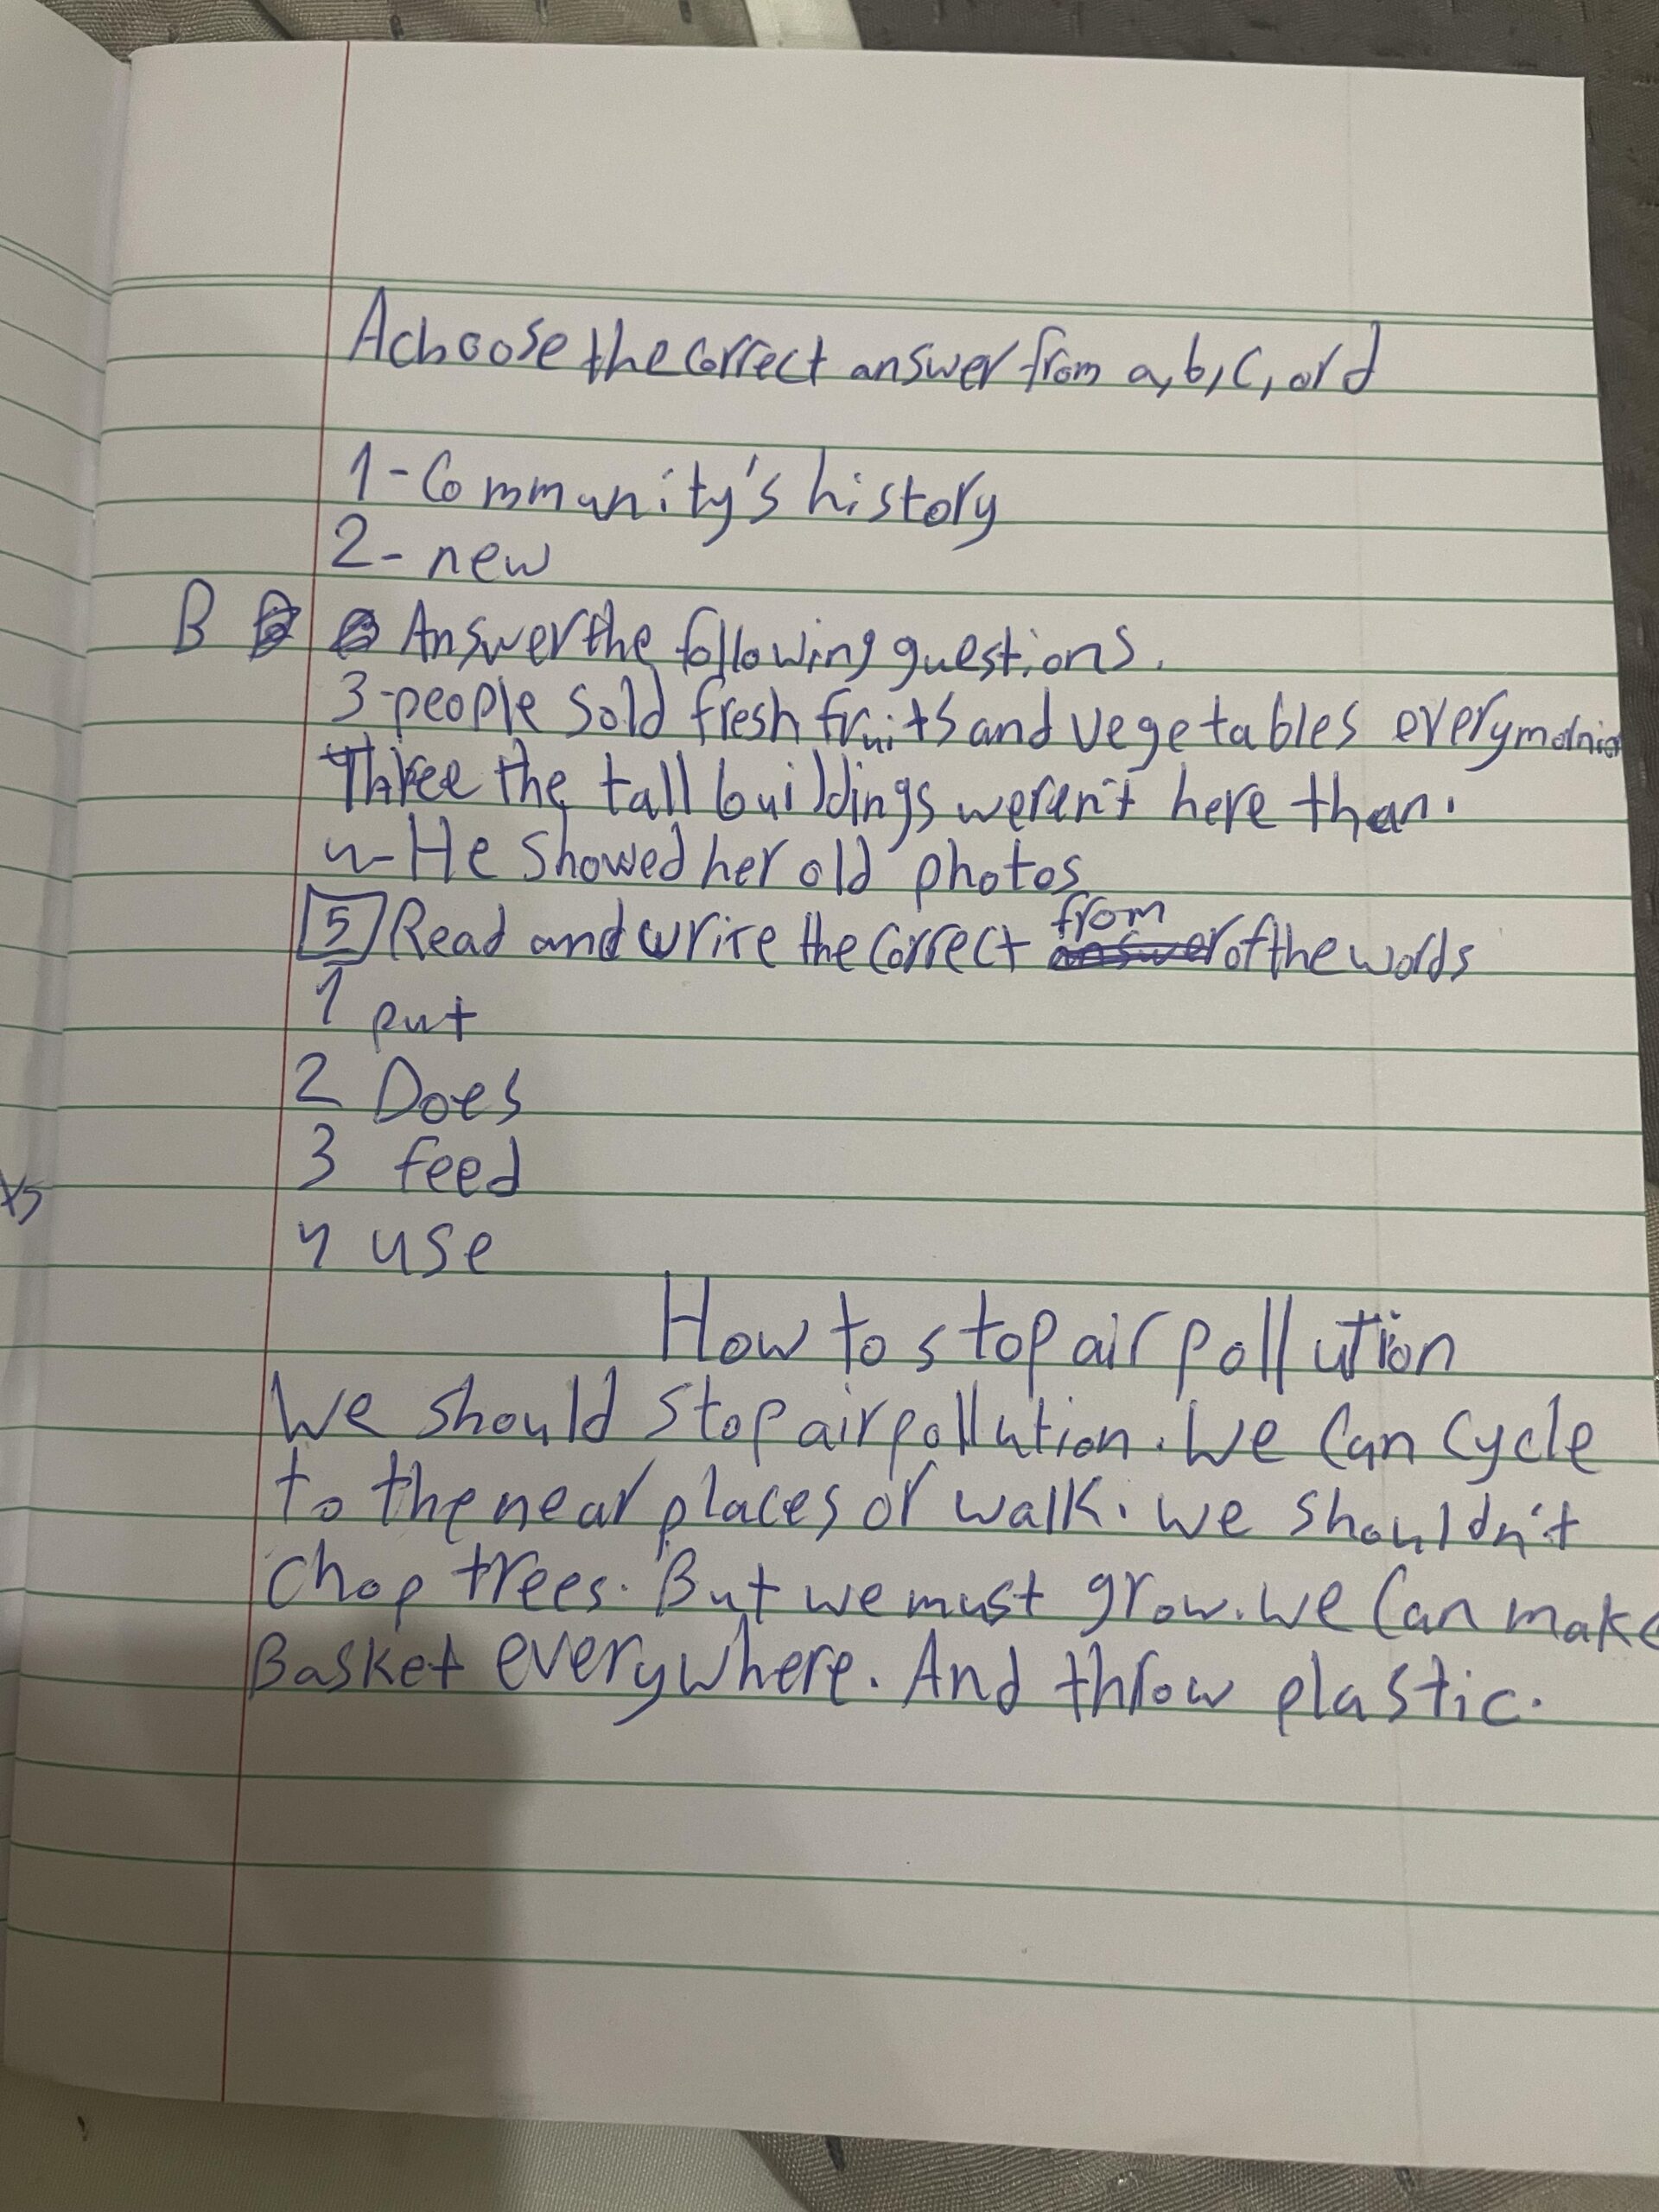 A choose the correct answer from a, b, c, or d
1- Community's history
2- new
B Answer the following questions.
3- people sold fresh fruits and vegetables every
the tall buildings weren't here then.
4- He showed her old photos
5 Read and write the correct from of the words
1 put
2 Does
3 feed
4 use
How to stop air pollution
We should stop air pollution. We can cycle
to the near places or walk. we shouldn't
chop trees. But we must grow. we can make
Basket everywhere. And throw plastic.